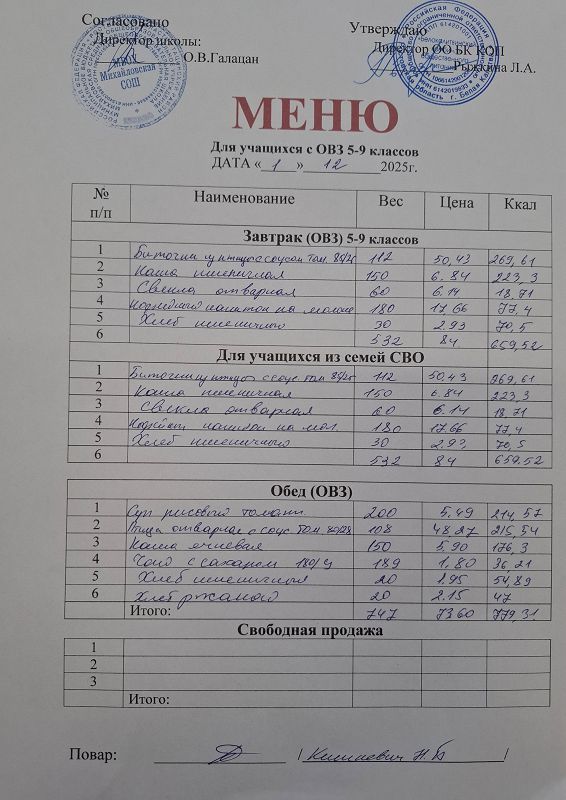 Согласовано
Утверждаю
Директор школы:
Директор ОО БК КОП
О.В.Галацан
Рыжкина Л.А.
МБОУ Михайловская СОШ
МЕНЮ
Для учащихся с ОВЗ 5-9 классов
ДАТА « 1 » 12 2025г.
№ п/п Наименование Вес Цена Ккал
Завтрак (ОВЗ) 5-9 классов
1 Биточки из птицы с соусом Том. 87/25 112 50,43 269,61
2 Каша пшеничная 150 6.84 223,3
3 Свекла отварная 60 6.14 18,71
4 Кофейный напиток на молоке 180 17,66 77,4
5 Хлеб пшеничного 30 2.93 70,5
6 532 84 659,52
Для учащихся из семей СВО
1 Биточки из птицы с соус Том 87/25 112 50,43 269,61
2 Каша пшеничная 150 6.84 223,3
3 Свекла отварная 60 6.14 18,71
4 Кофейн напиток на мол. 180 17.66 77,4
5 Хлеб пшеничного 30 2.93 70,5
6 532 84 659.52
Обед (ОВЗ)
1 Суп рисовый томатн. 200 5,49 214,57
2 Птица отварная с соус Том. 80/28 108 48.27 215,54
3 Каша ячневая 150 5,90 176,3
4 Чай с сахаром 180/9 189 1,80 36,21
5 Хлеб пшеничного 20 1.95 54,89
6 Хлеб ржаной 20 2.15 47
Итого: 747 73.60 779,31
Свободная продажа
1
2
3
Итого:
Повар: / Н.Б /